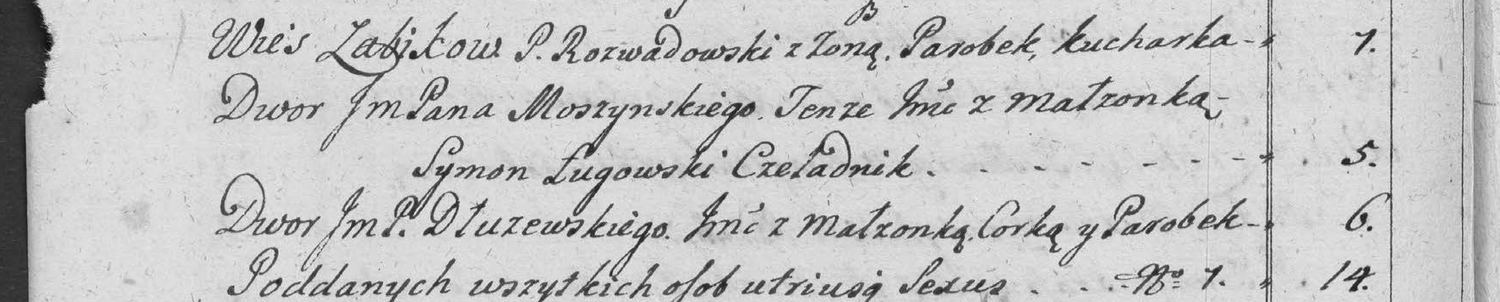 Wies Zabikow P. Rozwadowski z Zoną. Parobek, kucharka - 7.
Dwor Jm Pana Moszynskiego. Tenze Jmć z małzonką -
Symon Ługowski Czeladnik . . - - - - - . 5.
Dwor Jm P. Dłuzewskiego. Jmć z małzonką. Corką y Parobek - 6.
Poddanych wszytkich osob utriusq Sexus . . No 7. 14.